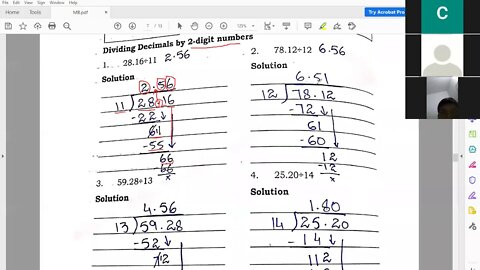 Home
Tools
MB.pdf
Sign In
125%
Try Acrobat Pro
Dividing Decimals by 2-digit numbers
1. 28.16÷11 2.56
Solution
2.56
11 28.16
-22
61
-55
66
66
x
2. 78.12÷12 6.56
Solution
6.51
12 78.12
-72
61
-60
12
-12
x
3. 59.28÷13
Solution
4.56
13 59.28
-52
72
4. 25.20÷14
Solution
1.80
14 25.20
-14
112
C